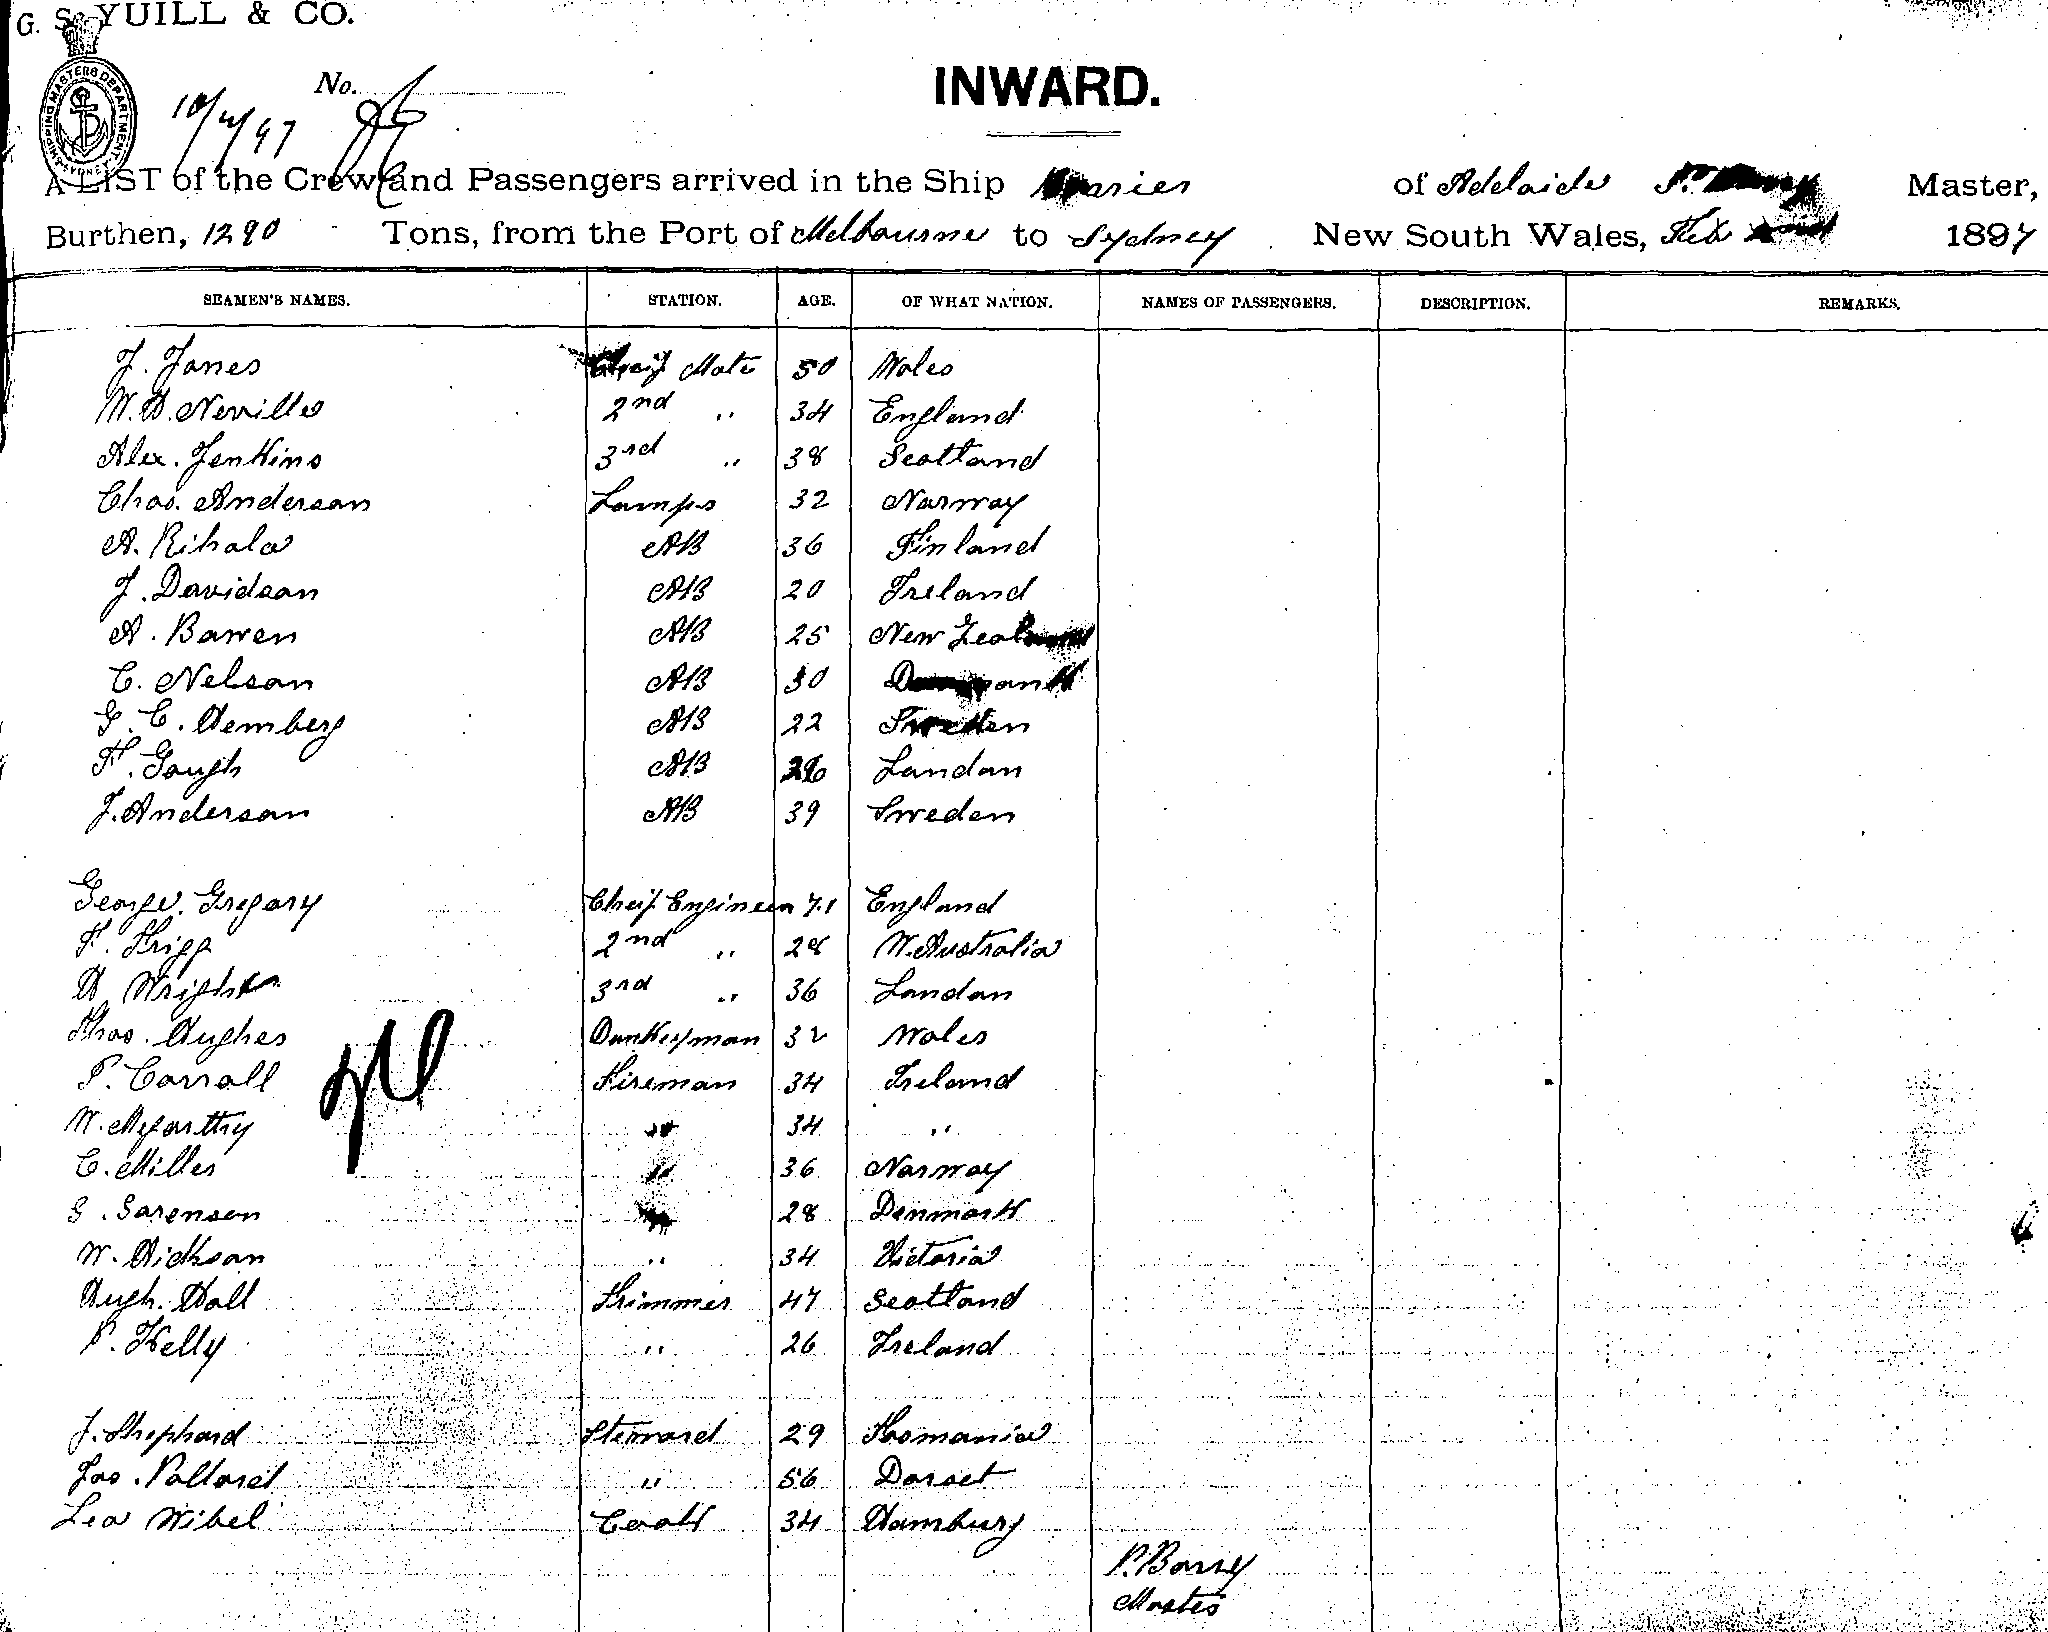 G. S. YUILL & CO.
SHIPPING MASTERS DEPARTMENT SYDNEY
No.
INWARD.
A LIST of the Crew and Passengers arrived in the Ship of Adelaide P. Master,
Burthen, 1290 Tons, from the Port of Melbourne to Sydney New South Wales, Feb 1897
SEAMEN'S NAMES. STATION. AGE. OF WHAT NATION. NAMES OF PASSENGERS. DESCRIPTION. REMARKS.
J. Jones Cheif Mate 50 Wales
W. H. Neville 2nd " 34 England
Alex. Jenkins 3rd " 38 Scotland
Chas. Anderson Lamps 32 Norway
A. Rihala AB 36 Finland
J. Davidson AB 20 Ireland
A. Bowen AB 25 New Zealand
C. Nelson AB 30 Denmark
G. C. Hemberg AB 22 Sweden
F. Gough AB London
J. Anderson AB 39 Sweden
George. Gregory Cheif Engineer England
F. Trigg 2nd " 28 W. Australia
H Wright 3rd " 36 London
Thos. Hughes Donkeyman 32 Wales
P. Carroll Fireman 34 Ireland
W. McCarthy " 34 "
C. Miller " 36 Norway
G. Sorenson " 28 Denmark
W. Hickson " 34 Victoria
Hugh. Hall Trimmer 47 Scotland
P. Kelly " 26 Ireland
J. Shephard Steward 29 Tasmania
Jas. Pollard " 56 Dorset
Leo Wibel Cook 34 Hamburg
P. Barry
Master